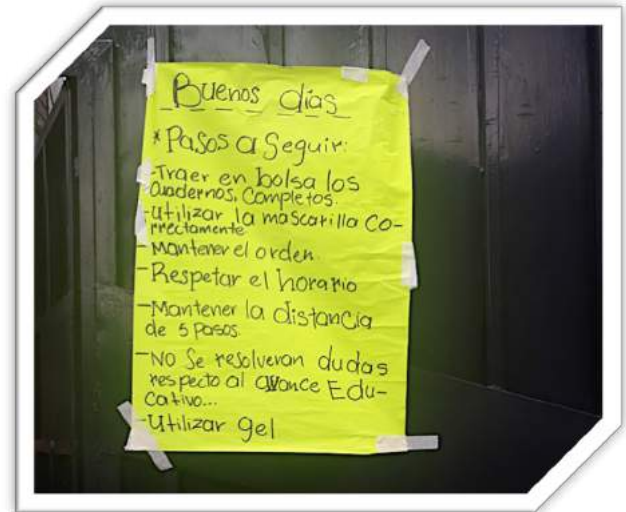 Buenos días
* Pasos a Seguir:
-Traer en bolsa los
Cuadernos, Completos.
-Utilizar la mascarilla Co-
rrectamente
- Mantener el orden
- Respetar el horario
-Mantener la distancia
de 5 pasos.
-No Se resolveran dudas
respecto al avance Edu-
cativo...
-Utilizar gel